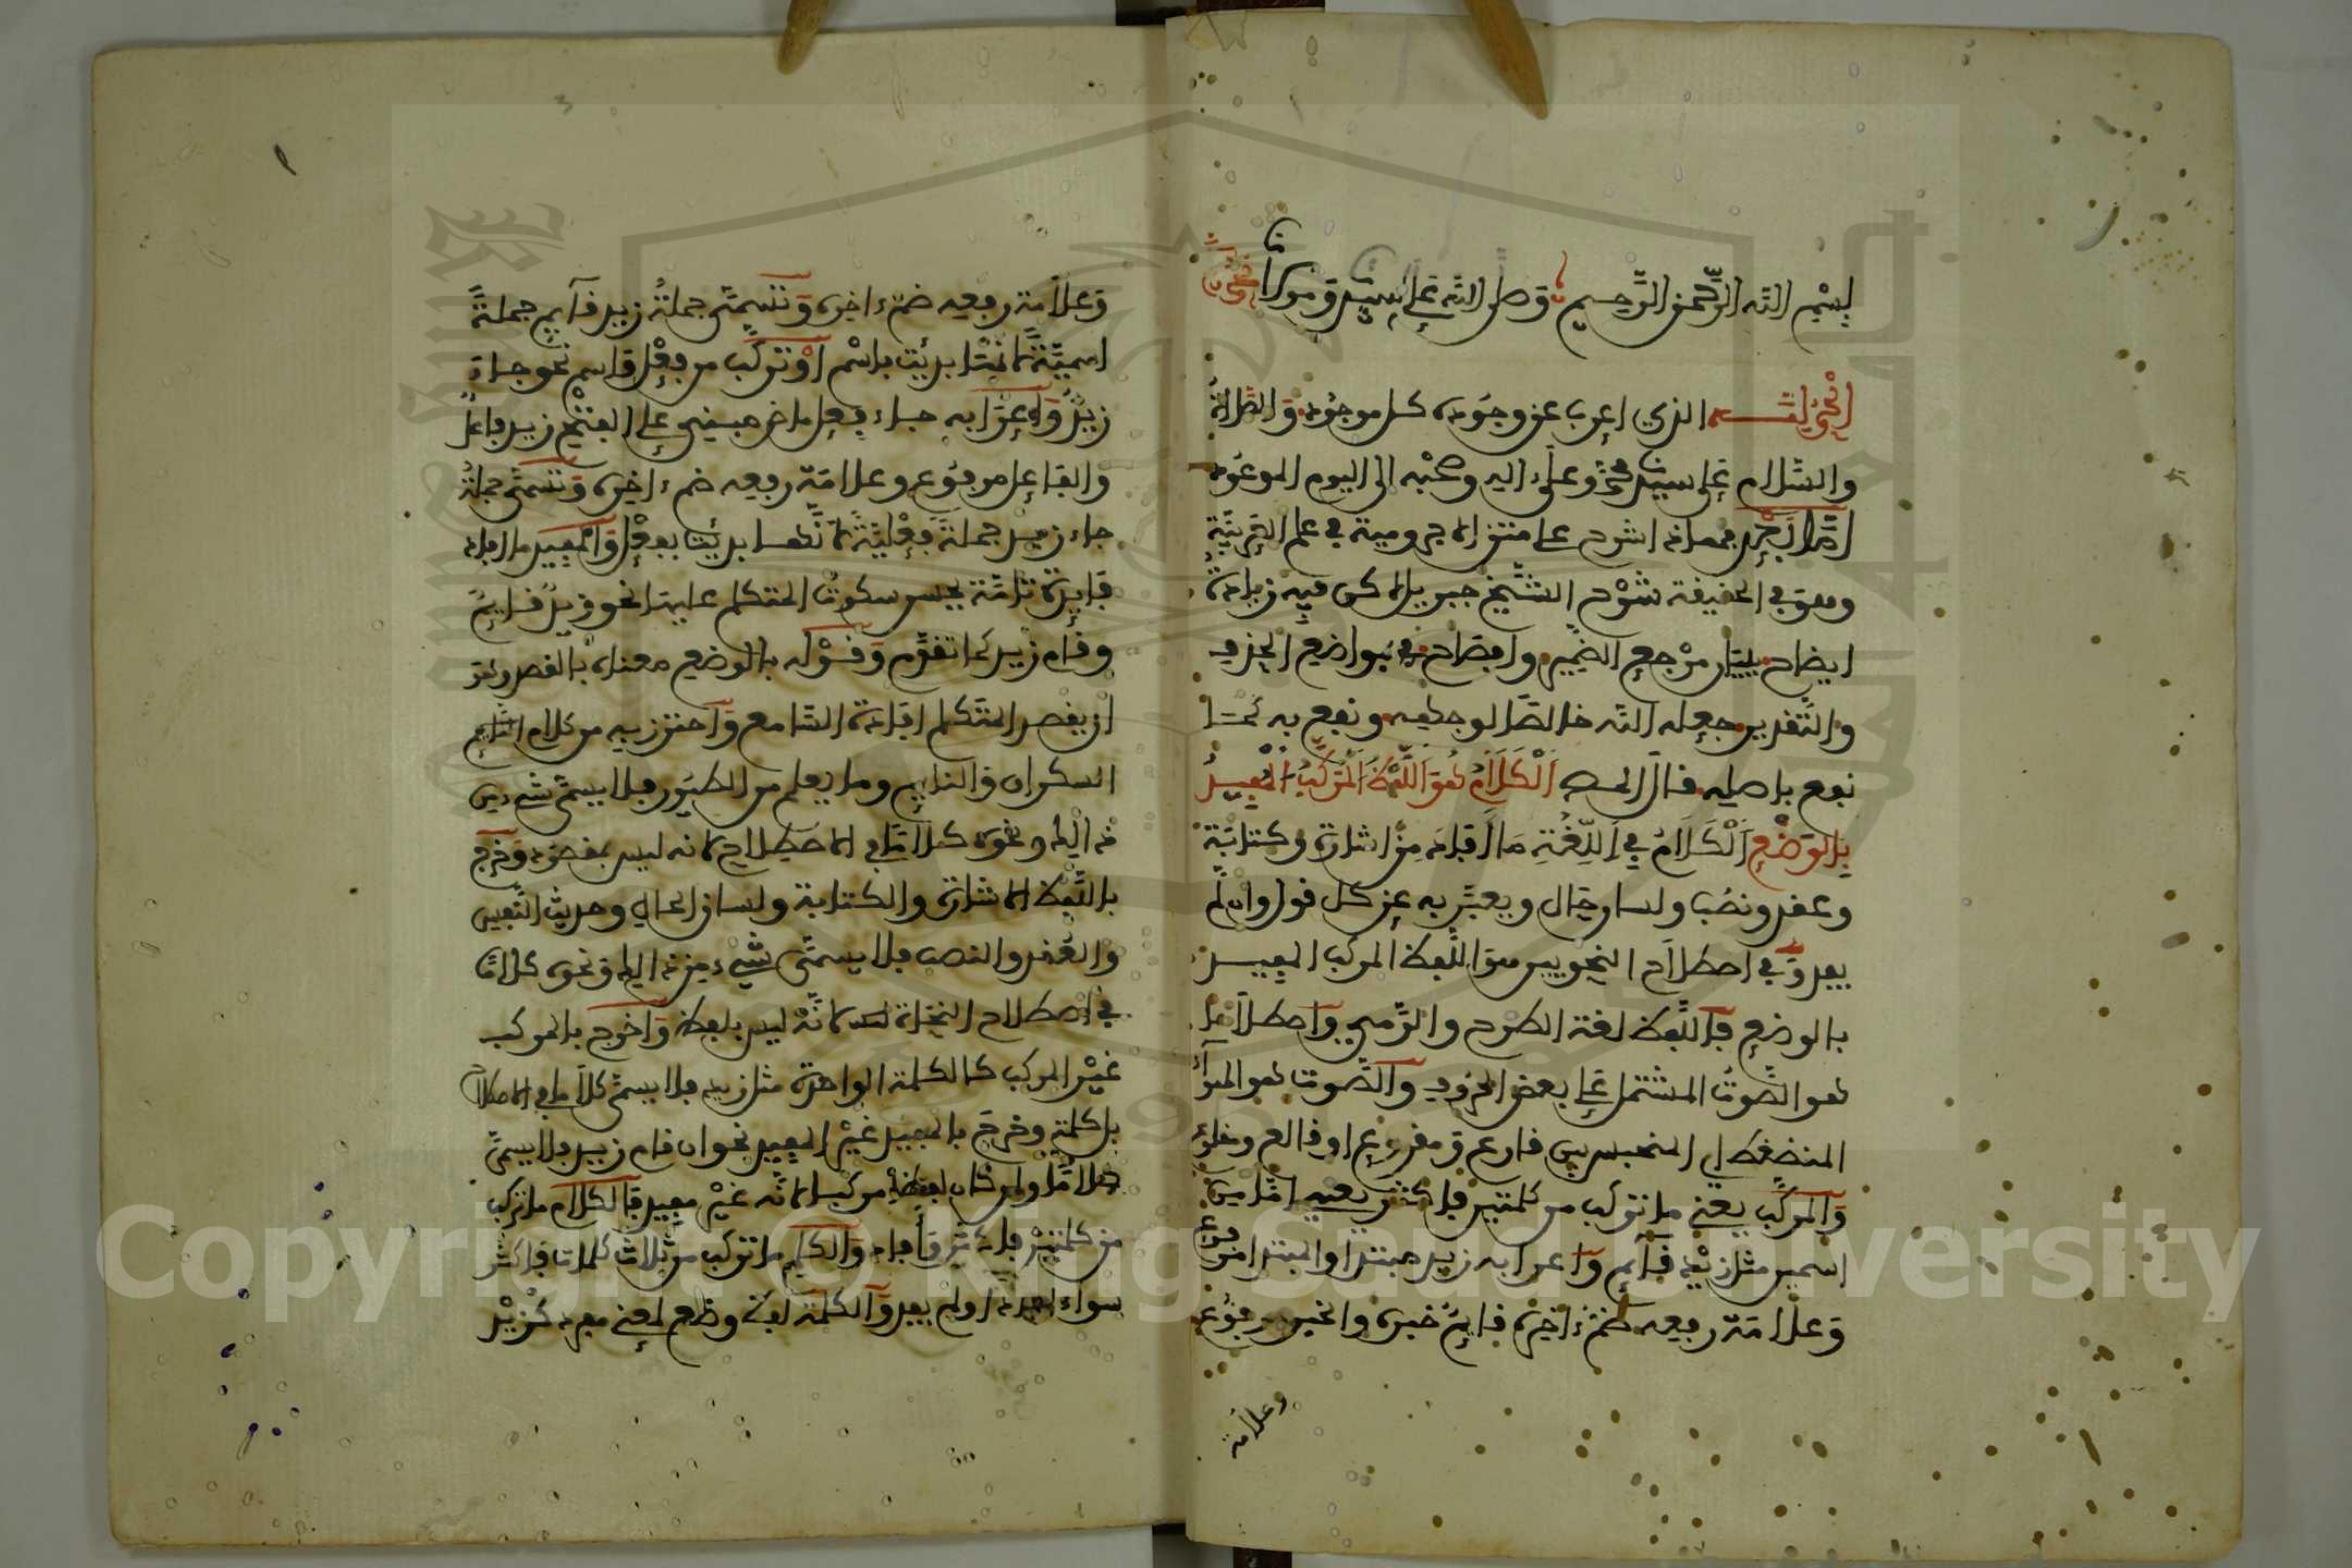 بسم الله الرحمن الرحيم وصلى الله على سيدنا ومولانا محمد
الحمد لله الذي اعرب عن وجوده كل موجود والصلاة
والسلام على سيدنا محمد وعلى اله وصحبه الى اليوم الموعود
اما بعد فهذا شرح على متن الاجرومية في علم العربية
وهو في الحقيقة شرح الشيخ جبريل لاكن فيه زيادة
ايضاح لبيان مرجع الضمير وافصاح في مواضع الحذف
والتقدير جعله الله خالصا لوجهه ونفع به كما
نفع باصله قال الْكَلَامُ هُوَ اللَّفْظُ الْمُرَكَّبُ الْمُفِيدُ
بِالْوَضْعِ الْكَلَامُ فِي اللُّغَةِ مَا أَفَادَ مِنْ اشارة وكتابة
وعقد ونصب ولسان حال ويعبر به عن كل قول وان لم
يفد وفي اصطلاح النحويين هو اللفظ المركب المفيد
بالوضع فاللفظ لغة الطرح والرمي واصطلاحا
هو الصوت المشتمل على بعض الحروف والصوت هو الهواء
المنضغط اي المنحبس بين قارع ومقروع او قالع ومقلوع
والمركب يعني ما تركب من كلمتين فاكثر يعني اما من
اسمين مثل زيد قائم واعرابه زيد مبتدا والمبتدا مرفوع
وعلامة رفعه ضم ءاخره قائم خبره والخبر مرفوع
وعلامة
وعلامة رفعه ضم ءاخره وتسمى جملة زيد قائم جملة
اسمية لانها بدئت باسم او تركب من فعل واسم نحو جاء
زيد واعرابه جاء فعل ماض مبني على الفتح زيد فاعل
والفاعل مرفوع وعلامة رفعه ضم ءاخره وتسمى جملة
جاء زيد جملة فعلية لانها بدئت بفعل والمفيد ما افاد
فايدة تامة يحسن سكوت المتكلم عليها نحو زيد قايم
وقام زيد كما تقدم وقوله بالوضع معناه بالقصد وهو
ان يقصد المتكلم افادة السامع واحترز به من كلام النايم
السكران والنايم وما يعلم من الطيور فلا يسمى شيء من
ذالك ونحوه كلاما في الاصطلاح لانه ليس بمقصود وخرج
باللفظ الاشارة والكتابة ولسان الحال وحديث النفس
والعقد والنصب فلا يسمى شيء من ذالك ونحوه كلاما
في اصطلاح النحاة لانه ليس بلفظ واخرج بالمركب
غير المركب كالكلمة الواحدة مثل زيد فلا يسمى كلاما في الاصطلاح
بل كلمة وخرج بالمفيد غير المفيد نحو ان قام زيد فلا يسمى
كلاما ولو كان لفظا مركبا لانه غير مفيد فالكلام ما تركب
من كلمتين فاكثر وافاد والكلم ما تركب من ثلاث كلمات فاكثر
سواء افاد او لم يفد والكلمة لفظ وضع لمعنى مفرد كزيد